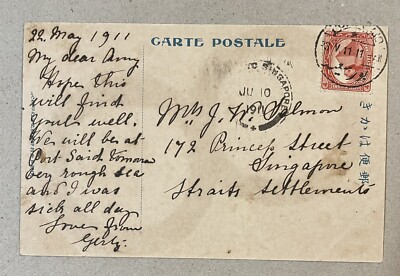 22 May 1911
CARTE POSTALE
My dear Amy
Hope this
will find
you well.
We will be at
Port Said tomorrow
very rough sea
and I was
sick all day
Love from
Gerty.
Mrs J. W. Salmon
172 Princess Street
Singapore
Straits Settlements
SINGAPORE
JU 10
1911
きかは便郵